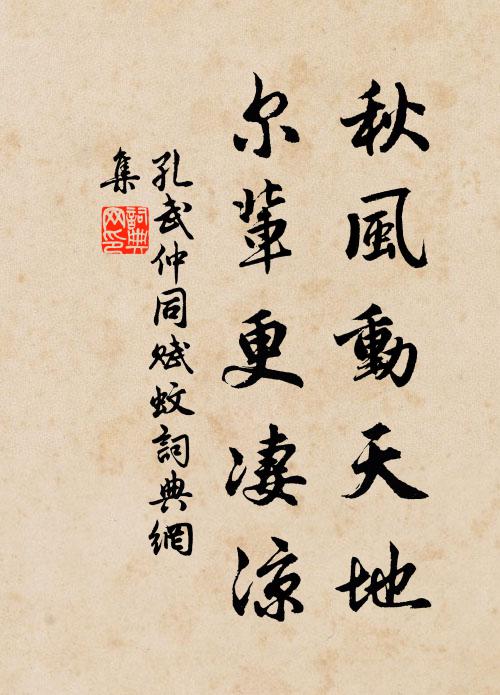 秋風動天地
尔輩更凄涼
孔武仲同赋蚊詞典網
集
詞典網印